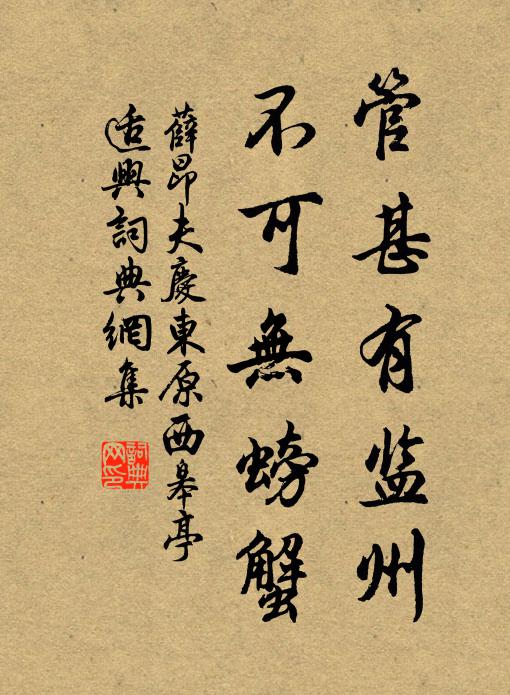 管甚有监州
不可無螃蟹
薛昂夫慶東原西皋亭
适興詞典網集
詞典網印